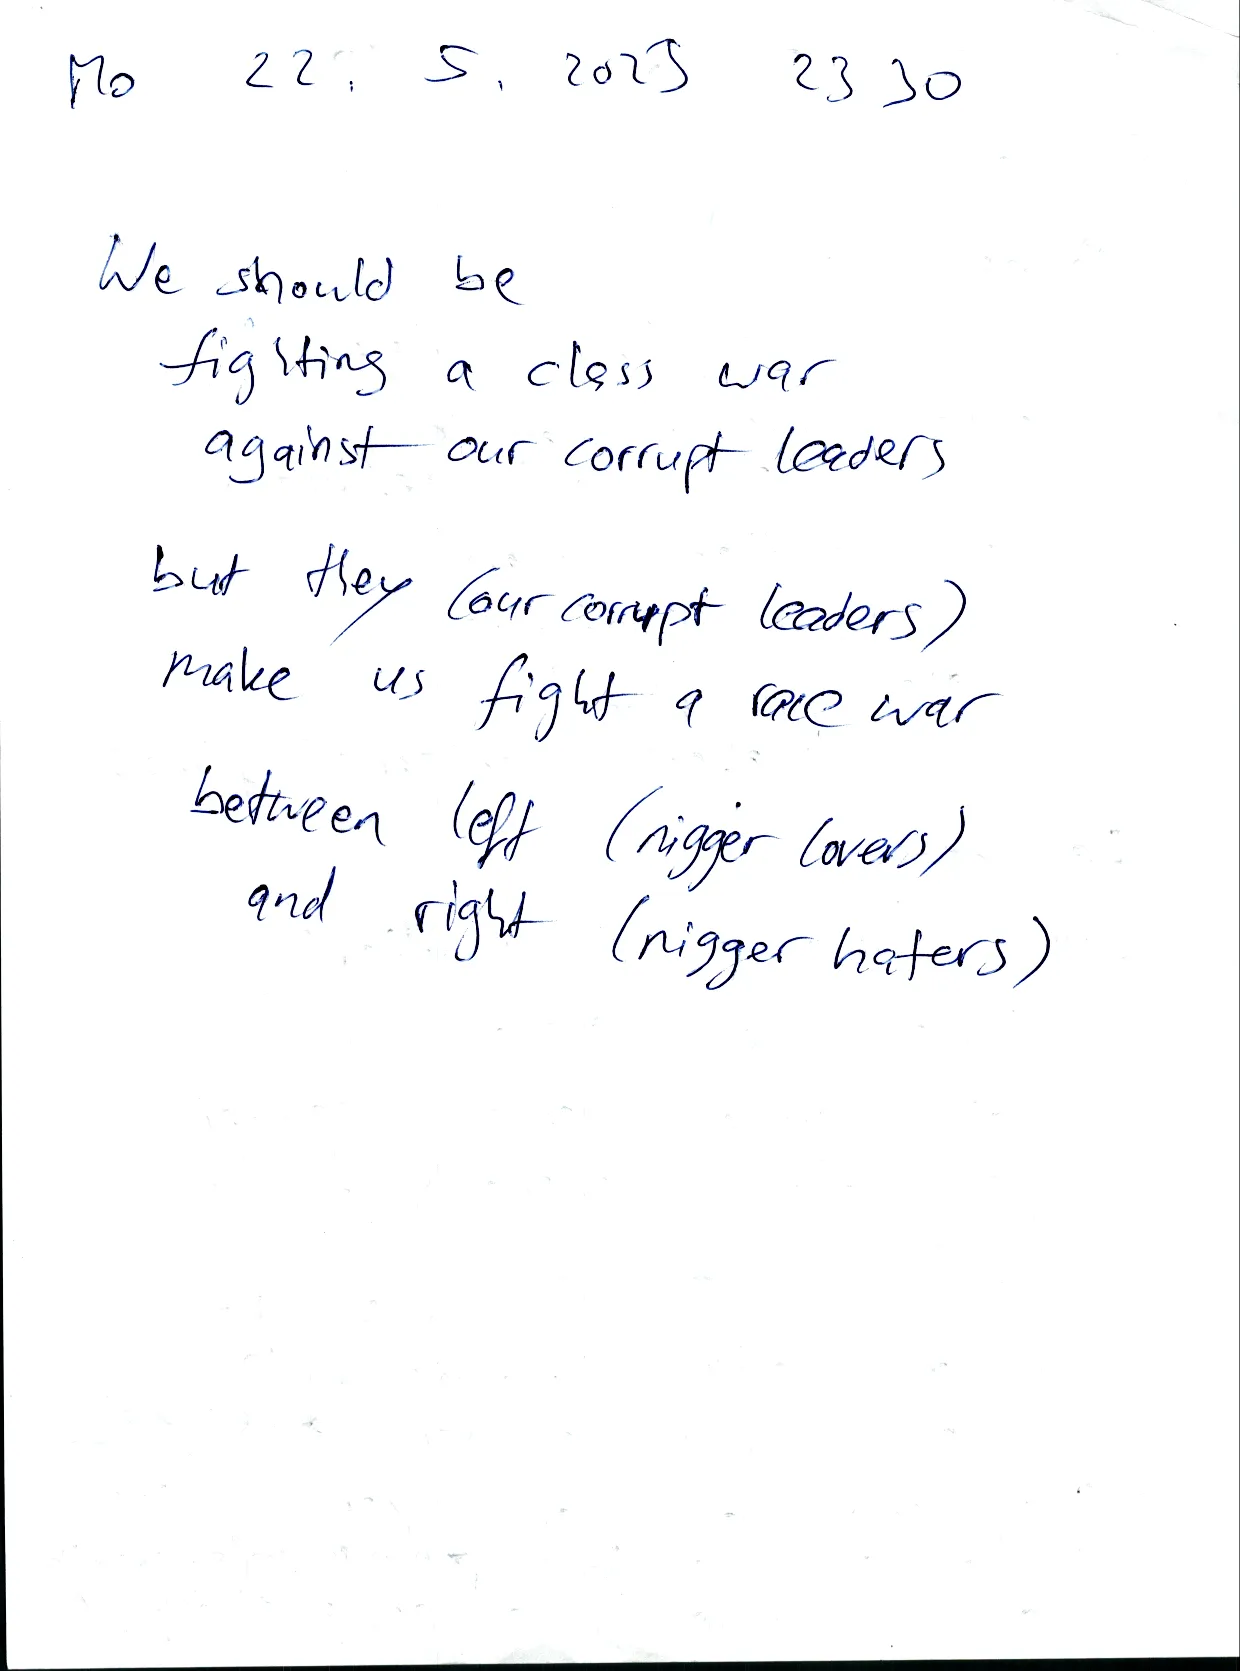 Mo 22. 5. 2023 23 30
We should be
fighting a class war
against our corrupt leaders
but they (our corrupt leaders)
make us fight a race war
between left (nigger lovers)
and right (nigger haters)